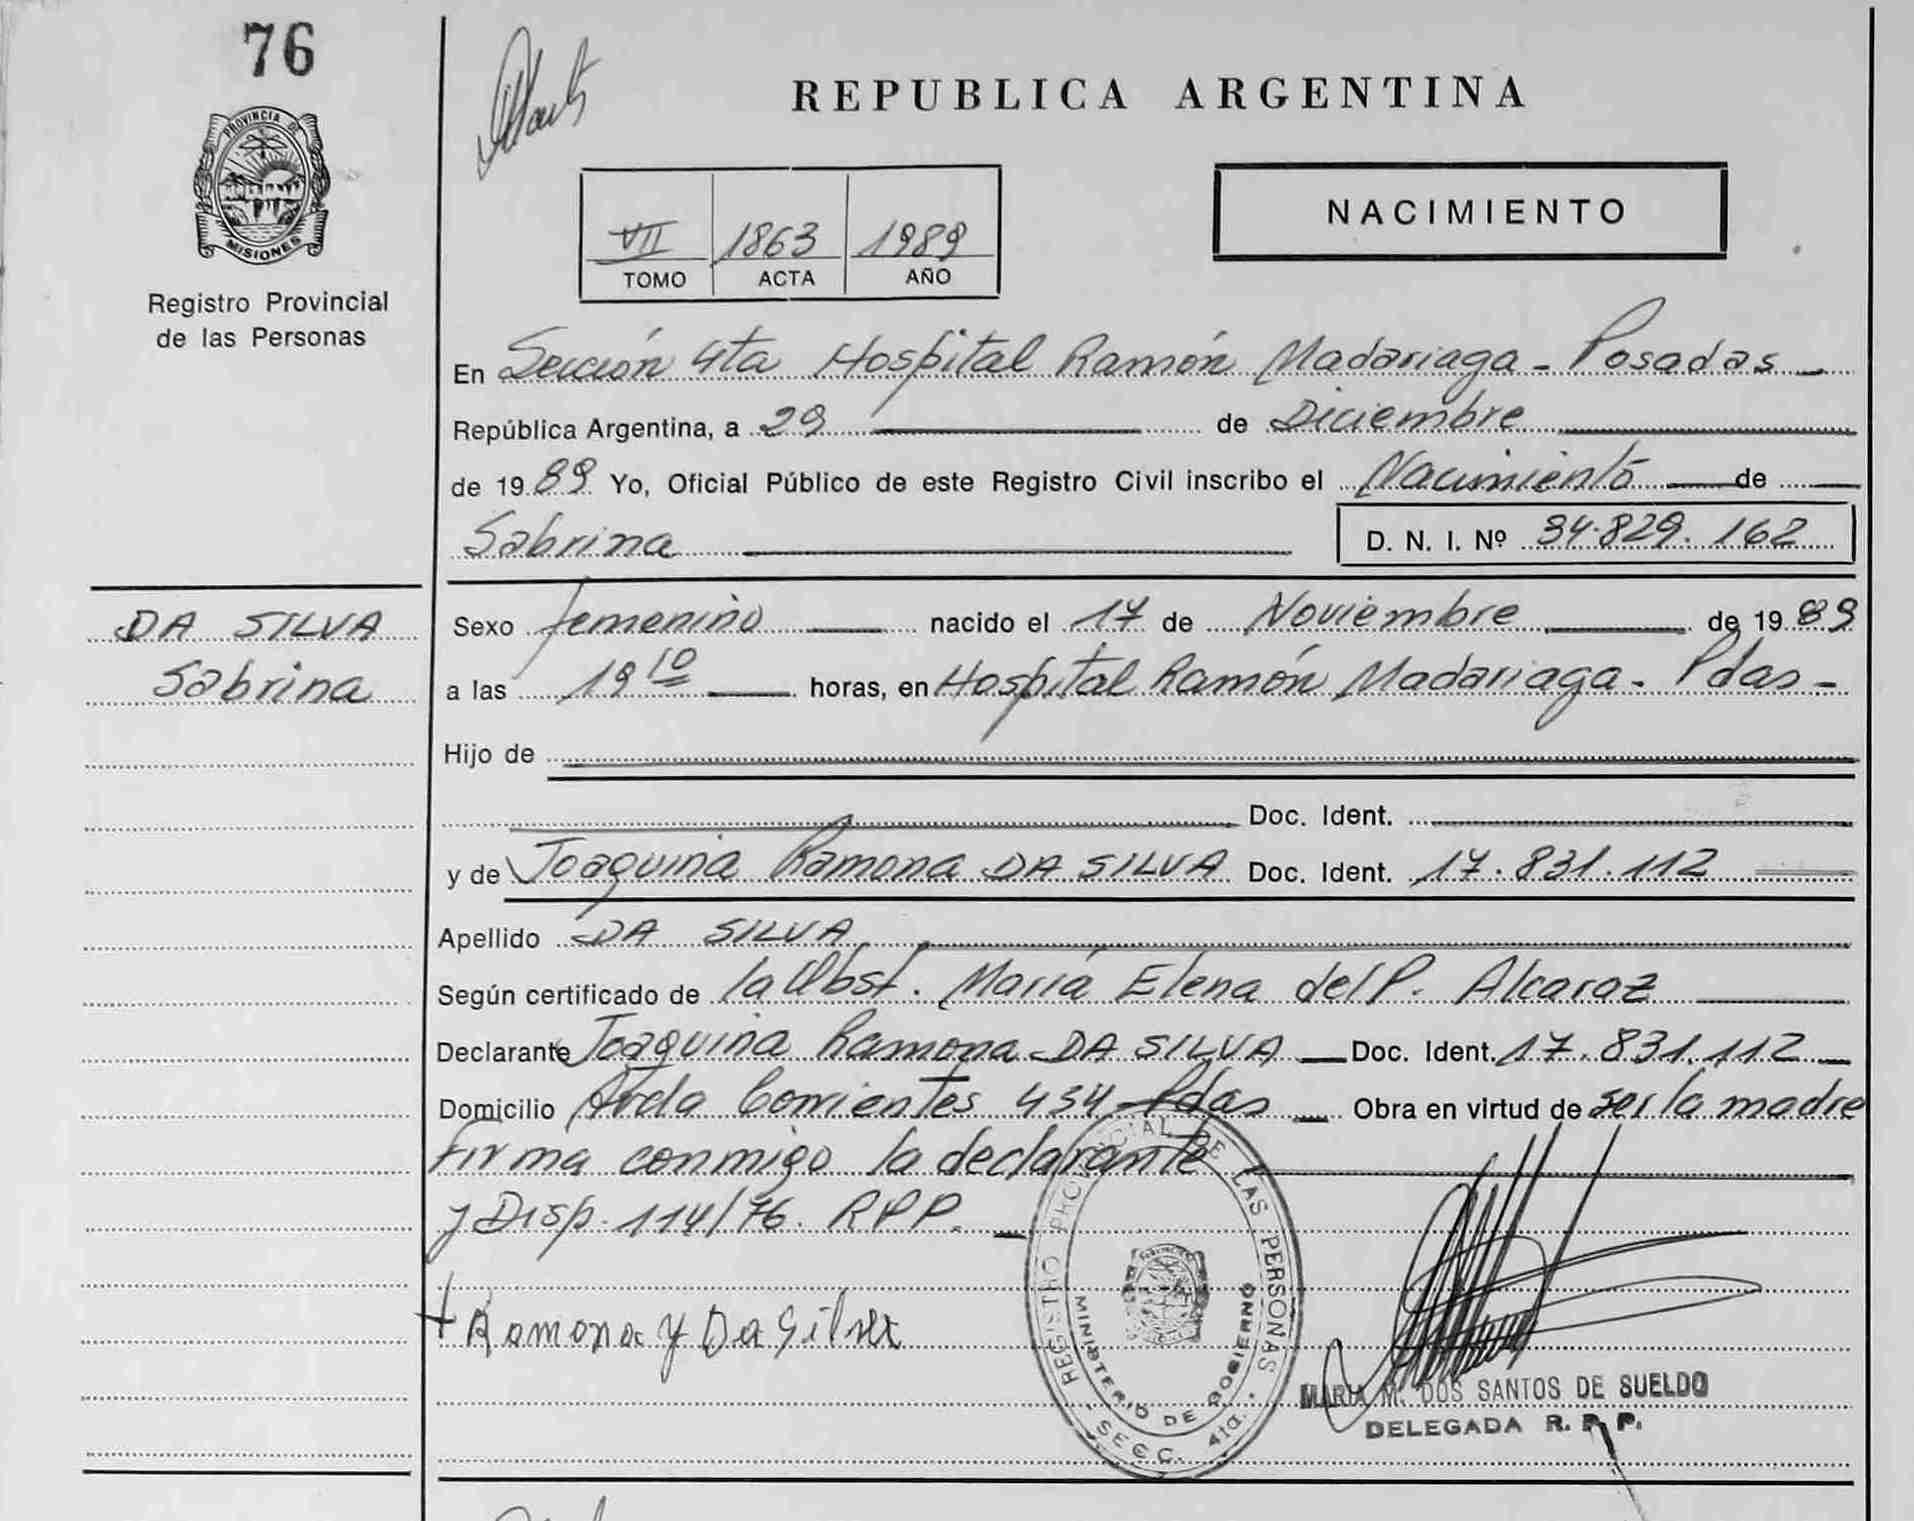 76
PROVINCIA DE
MISIONES
Registro Provincial
de las Personas
REPUBLICA ARGENTINA
VII 1863 1989
TOMO ACTA AÑO
NACIMIENTO
En Sección 4ta Hospital Ramón Madariaga - Posadas -
República Argentina, a 29 de Diciembre
de 1989 Yo, Oficial Público de este Registro Civil inscribo el Nacimiento de
Sabrina D. N. I. Nº 34.829.162
DA SILVA
Sabrina
Sexo femenino nacido el 17 de Noviembre de 1989
a las 19 10 horas, en Hospital Ramón Madariaga - Pdas -
Hijo de
Doc. Ident.
y de Joaquina Ramona DA SILVA Doc. Ident. 17.831.112
Apellido DA SILVA
Según certificado de la Obst. María Elena del P. Alcaraz
Declarante Joaquina Ramona DA SILVA Doc. Ident. 17.831.112
Domicilio Avda Corrientes 434 Pdas Obra en virtud de ser la madre
firma conmigo la declarante
y Disp. 114/76. RPP.
+ Ramona y Da Silva
REGISTRO PROVINCIAL DE LAS PERSONAS
MINISTERIO DE GOBIERNO
- SECC. 4ta. -
MARIA M. DOS SANTOS DE SUELDO
DELEGADA R. P. P.